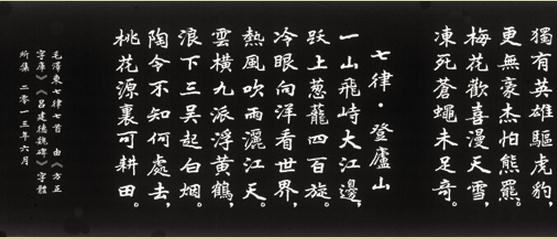 獨有英雄驅虎豹，
更無豪杰怕熊羆。
梅花歡喜漫天雪，
凍死蒼蠅未足奇。
七律·登廬山
一山飛峙大江邊，
跃上葱蘢四百旋。
冷眼向洋看世界，
熱風吹雨灑江天。
雲横九派浮黄鶴，
浪下三吴起白烟。
陶令不知何處去，
桃花源裏可耕田。
毛澤東七律七首　由《方正
字庫》《吕建德魏碑》字體
所集　二零一三年六月